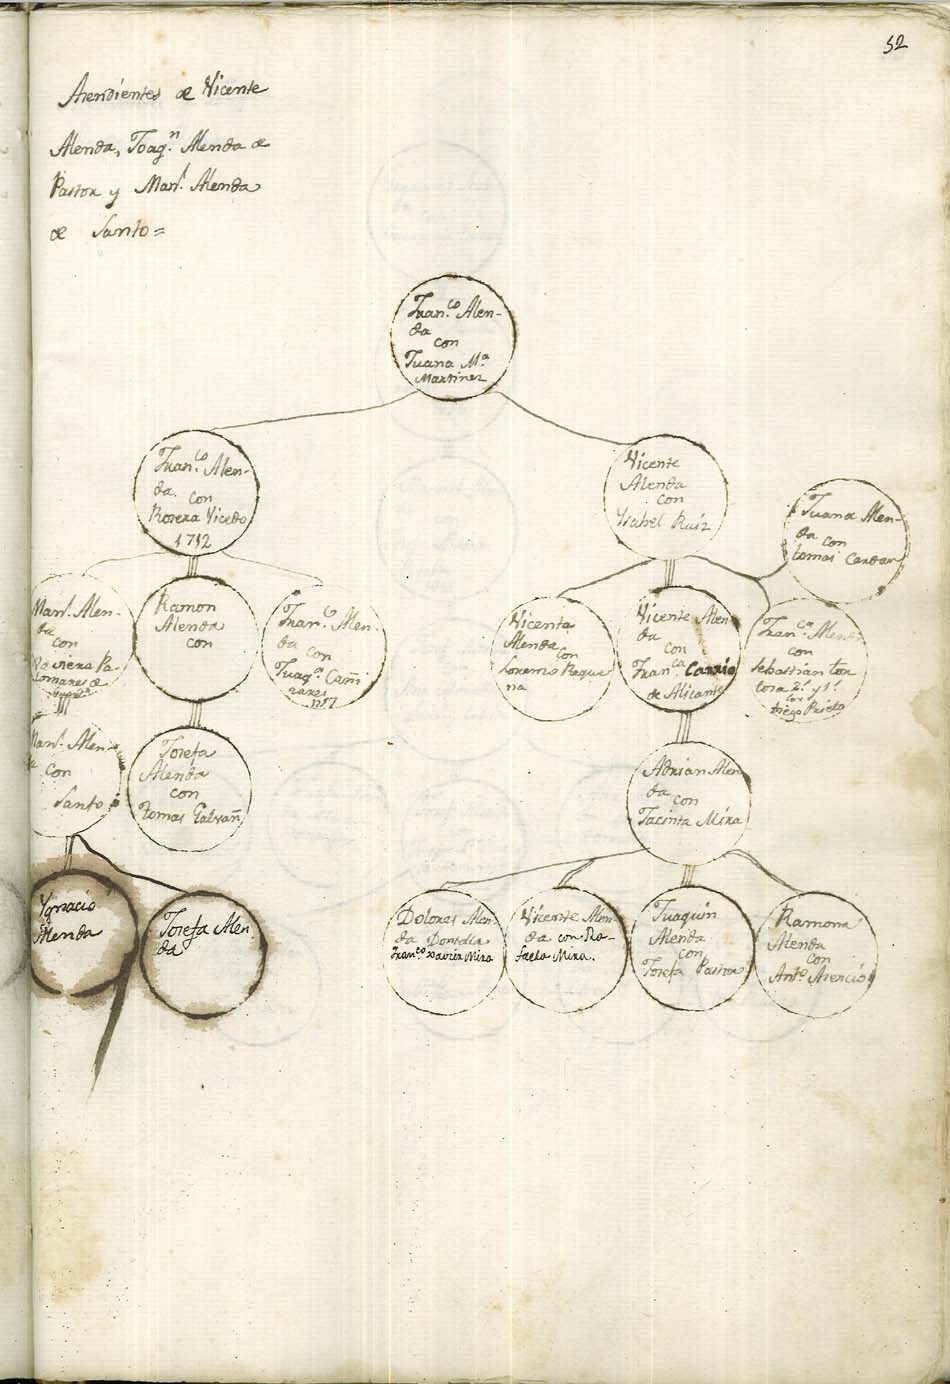 52
Asendientes de Vicente
Alenda, Joaq.n Alenda de
Pastor y Man.l Alenda
de Santo=
Fran.co Alen-
da
con
Juana M.a
Martinez
Fran.co Alen-
da. con
Rosera Vicedo
1712
Vicente
Alenda
con
Ysabel Ruiz
Juana Alen-
da con
tomas
Man.l Alen-
da
con
Pa-
lomares de
Ramon
Alenda
con
Fran.co Alen-
da con
Juaq.a Cañi
zares
Vicenta
Alenda
con
Lorenso Reque
na
Vicente Alen
da
con
Fran.ca Carrio
de Alicante
Fran.ca Alenda
con
Sebastian tor
tosa 2.º y 1.º
con
Diego Prieto
Man.l Alen-
da
con
Santo
Josefa
Alenda
con
tomas Galvañ
Adrian Alen
da con
Jacinta Mira
Ygnacio
Alenda
Josefa Alen
da
Dolores Alen-
da Donsella
Fran.co Xavier Mira
Vicente Alen
da con Ra-
faela Mira.
Juaquin
Alenda
con
Josefa Pastor
Ramona
Alenda
con
Ant.o Asencio